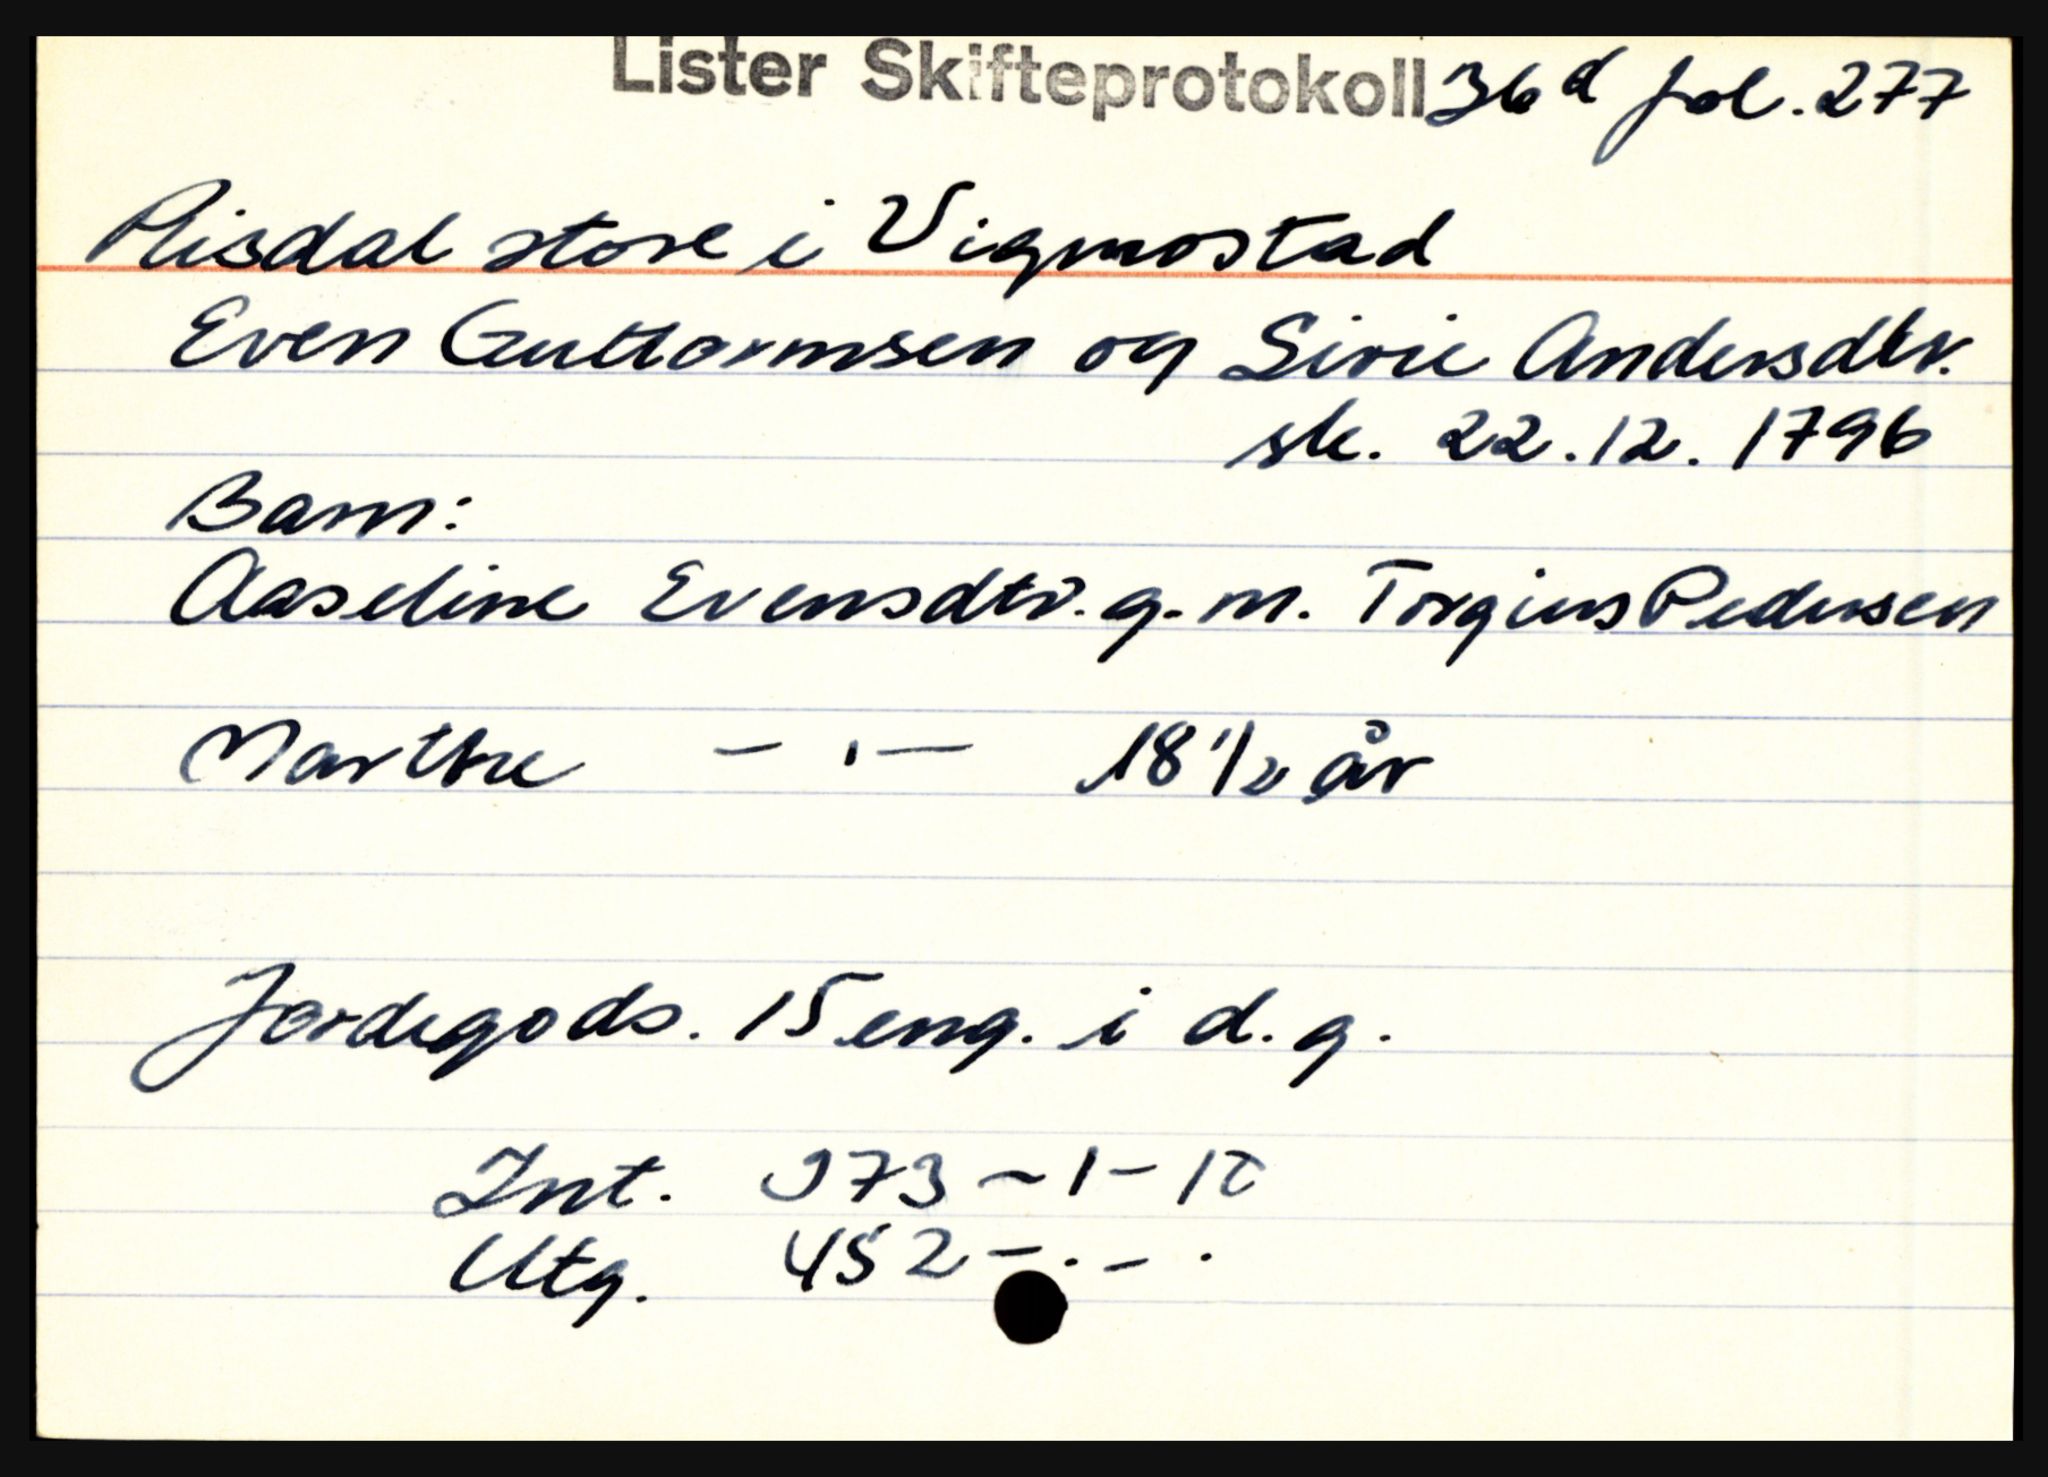 Lister Skifteprotokoll 36d fol. 277
Risdal store i Vigmostad
Even Guttormsen og Sirie Andersdtr.
sk. 22.12.1796
Barn:
Aaseline Evensdtr. g. m. Torgius Pedersen
Marthe — . — 18 1/2 år
Jordegods. 15 eng. i d. g.
Int. 973 – 1 – 10
Utg. 452 – . – .